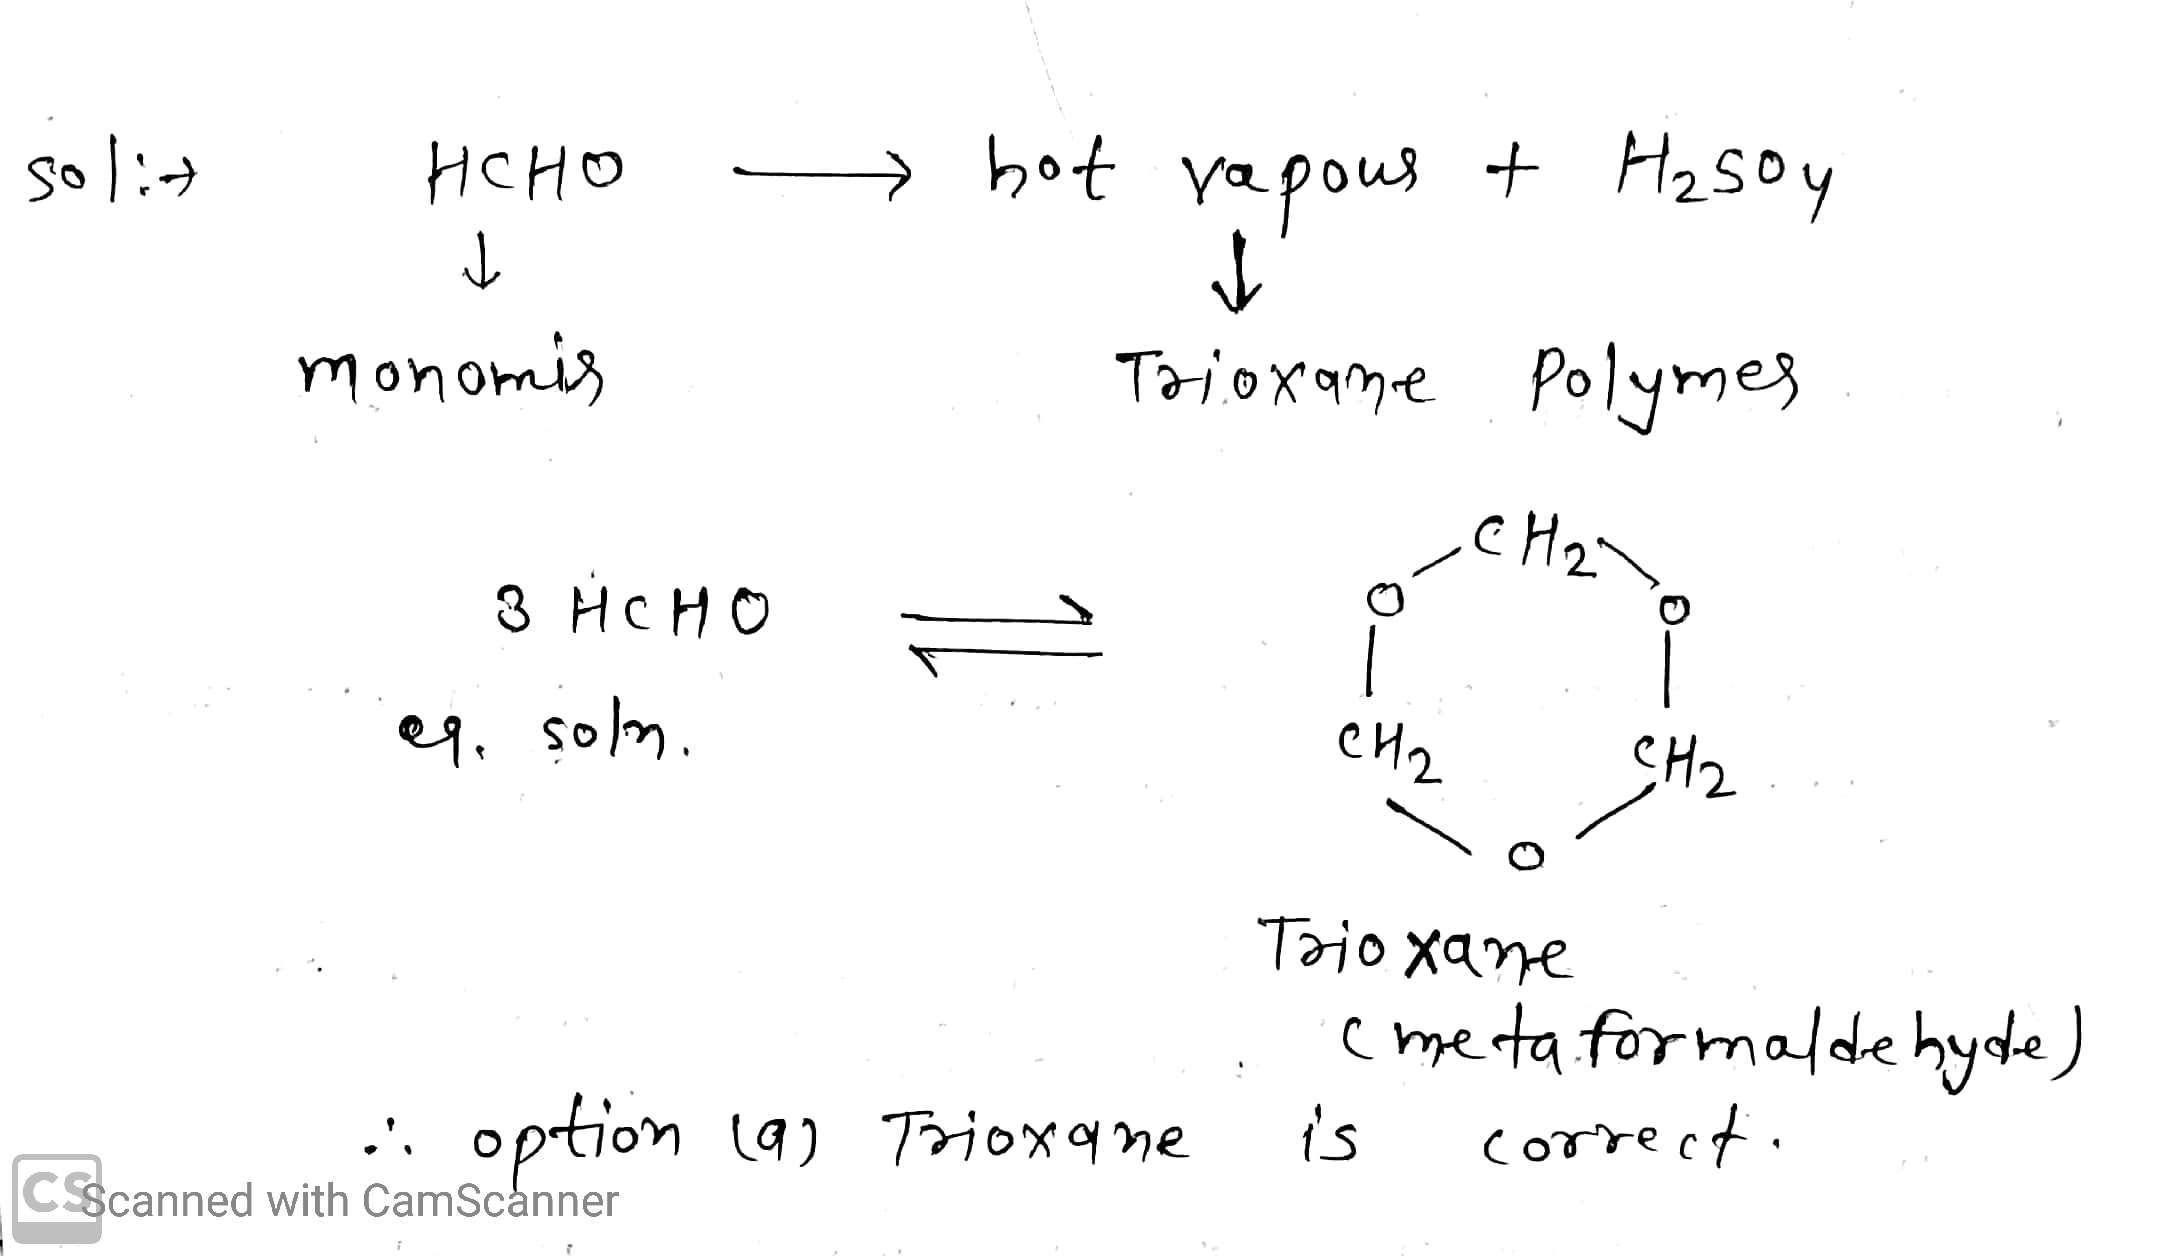 sol:→ HCHO → hot vapour + H2SO4
↓ ↓
monomer Trioxane Polymer
CH2
3 HCHO ⇌ O O
eq. soln. CH2 CH2
O
Trioxane
(metaformaldehyde)
∴ option (a) Trioxane is correct.
CS Scanned with CamScanner